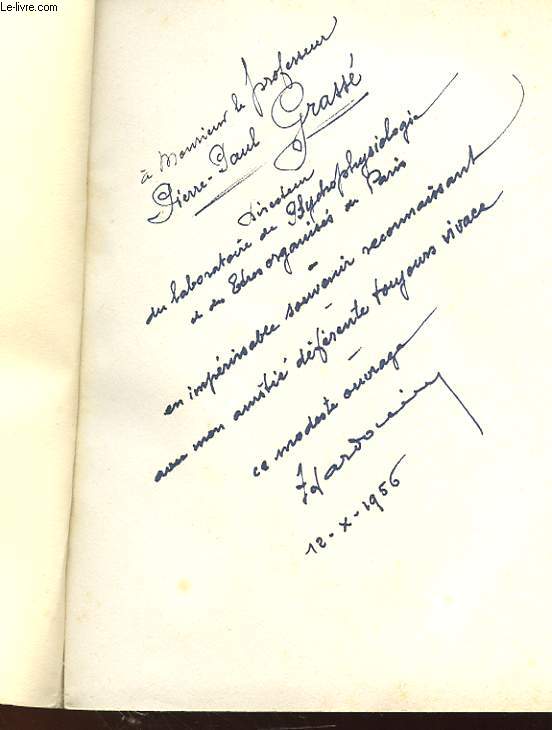 Le-livre.com
à Monsieur le professeur
Pierre-Paul Grassé
Directeur
du laboratoire de Psychophysiologie
et des Etres organisés de Paris
en impérissable souvenir reconnaissant
avec mon amitié déférente toujours vivace
ce modeste ouvrage
12-X-1956